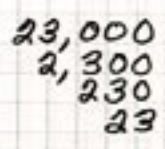 23,000
2,300
230
23